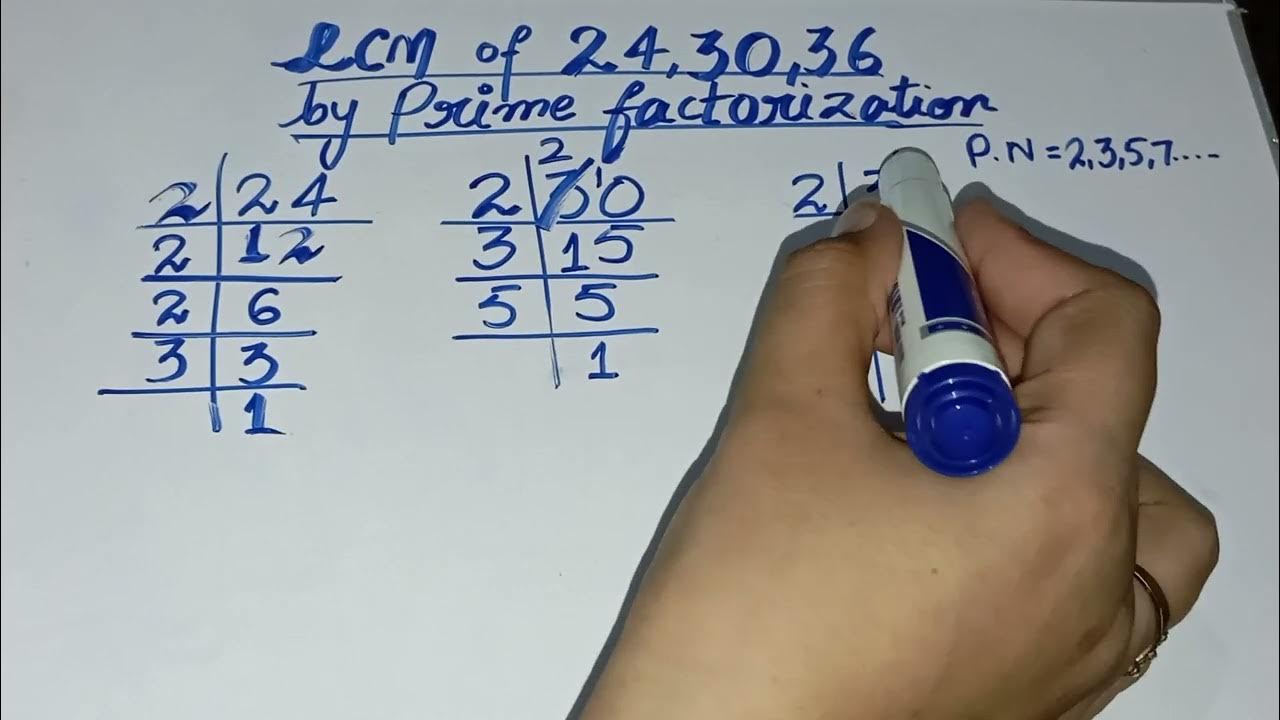 LCM of 24,30,36
by Prime factorization
P.N = 2,3,5,7....
2 24
2 12
2 6
3 3
1
2 1
2 30
3 15
5 5
1
2